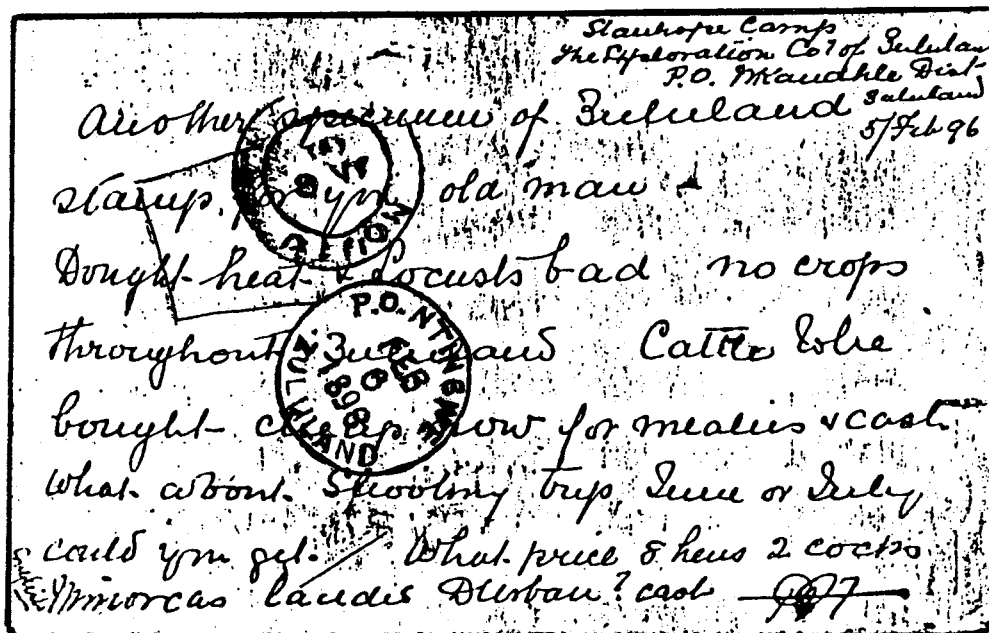 Stanhope Camp
The Exploration Coy of Zululand
P.O. Nkandhla Dist
Zululand
5/Feb 96
Another specimen of Zululand
stamp, for you old man
Dought heat & Locusts bad no crops
throughout Zululand Cattle to be
bought cheap now for mealies & cash
What about Shooting trip, June or July
could you get. What price 8 hens 2 cocks
Minorcas landed Durban? cash
P.O. NTINGWE
FEB
6
1896
ZULULAND